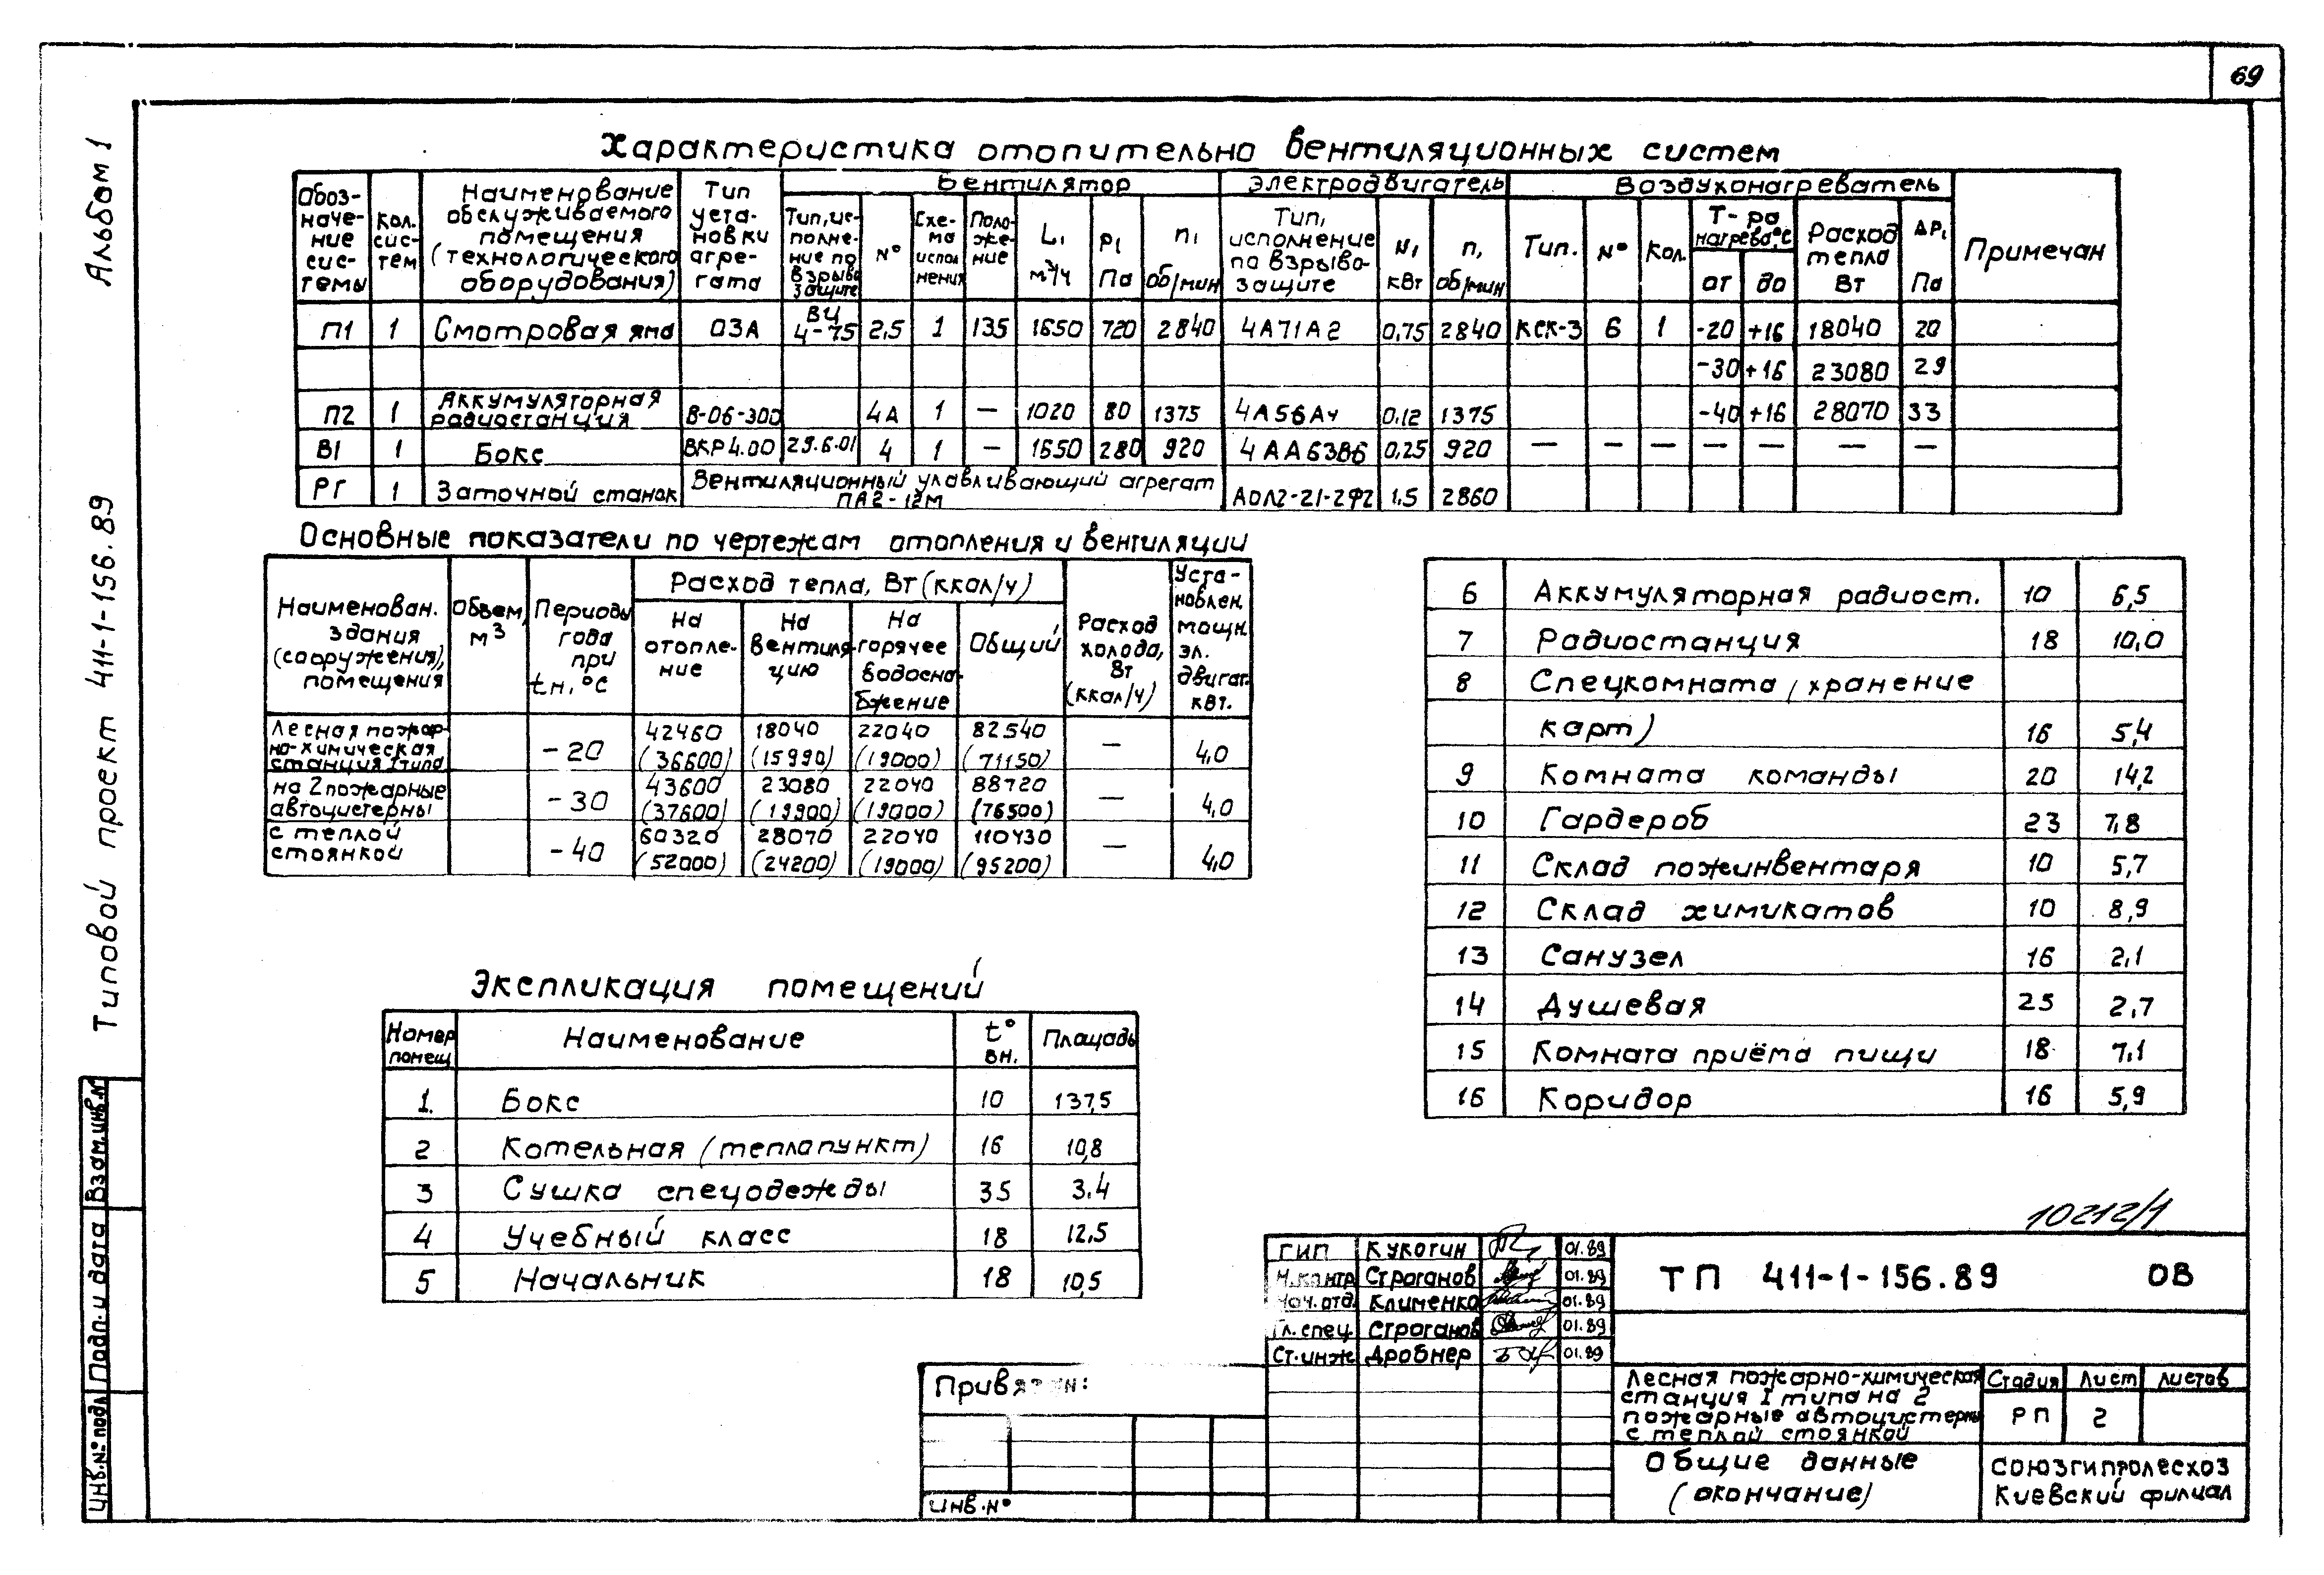 69
Альбом 1
Типовой проект 411-1-156.89
Характеристика отопительно вентиляционных систем
Обоз-
наче-
ние
сис-
темы
Кол.
сис-
тем
Наименование
обслуживаемого
помещения
(технологического
оборудования)
Тип
уста-
новки
агре-
гата
Вентилятор
Тип, ис-
полне-
ние по
взрыво
защите
N°
Схе-
ма
испол
нения
Поло-
же-
ние
L,
м³/ч
P,
Па
n,
об/мин
Электродвигатель
Тип,
исполнение
по взрыво-
защите
N,
кВт
n,
об/мин
Воздухонагреватель
Тип.
N°
Кол.
Т-ра
нагрева,°С
от
до
Расход
тепла
Вт
ΔР,
Па
Примечан
П1 1 Смотровая яма ОЗА ВЦ 4-75 2,5 1 135 1650 720 2840 4А71А2 0,75 2840 КСК-3 6 1 -20 +16 18040 20
-30 +16 23080 29
П2 1 Аккумуляторная радиостанция В-06-300 4А 1 — 1020 80 1375 4А56А4 0,12 1375 -40 +16 28070 33
В1 1 Бокс ВКР4.00 29.6.01 4 1 — 1650 280 920 4АА63В6 0,25 920 — — — — — — —
РГ 1 Заточной станок Вентиляционный улавливающий агрегат ПА2-12М АОЛ2-21-2Ф2 1.5 2860
Основные показатели по чертежам отопления и вентиляции
Наименован.
здания
(сооружения),
помещения
Объем,
м3
Периоды
года
при
tн,°С
Расход тепла, Вт (ккал/ч)
На
отопле-
ние
На
вентиля-
цию
На
горячее
водосна-
бжение
Общий
Расход
холода,
Вт
(ккал/ч)
Уста-
новлен.
мощн.
эл.
двигат.
кВт.
Лесная пожар-
но-химическая
станция I типа
-20 42460 18040 22040 82540 — 4,0
(36600) (15990) (19000) (71150)
на 2 пожарные
автоцистерны
-30 43600 23080 22040 88720 — 4,0
(37600) (19900) (19000) (76500)
с теплой
стоянкой
-40 60320 28070 22040 110430 — 4,0
(52000) (24200) (19000) (95200)
Экспликация помещений
Номер
помещ
Наименование
t°
вн.
Площадь
1. Бокс 10 137,5
2 Котельная (теплопункт) 16 10,8
3 Сушка спецодежды 35 3.4
4 Учебный класс 18 12,5
5 Начальник 18 10,5
6 Аккумуляторная радиост. 10 6,5
7 Радиостанция 18 10,0
8 Спецкомната (хранение
карт) 16 5,4
9 Комната команды 20 14,2
10 Гардероб 23 7,8
11 Склад пожинвентаря 10 5,7
12 Склад химикатов 10 8,9
13 Санузел 16 2,1
14 Душевая 25 2,7
15 Комната приёма пищи 18 7,1
16 Коридор 16 5,9
10212/1
ГИП Кукогин 01.89
Н.контр Строганов 01.89
Нач.отд. Клименко 01.89
Гл.спец. Строганов 01.89
Ст.инж Дробнер 01.89
ТП 411-1-156.89 ОВ
Лесная пожарно-химическая
станция I типа на 2
пожарные автоцистерны
с теплой стоянкой
Стадия Лист Листов
РП 2
Общие данные
(окончание)
Союзгипролесхоз
Киевский филиал
Привязан:
Инв.N°
Взам.инв.N
Подп. и дата
Инв.N°подл